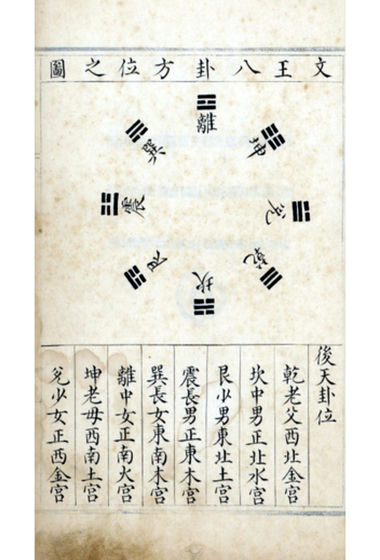 文王八卦方位之圖
離
坤
兌
乾
坎
艮
震
巽
後天卦位
乾老父西北金宮
坎中男正北水宮
艮少男東北土宮
震長男正東木宮
巽長女東南木宮
離中女正南火宮
坤老母西南土宮
兌少女正西金宮